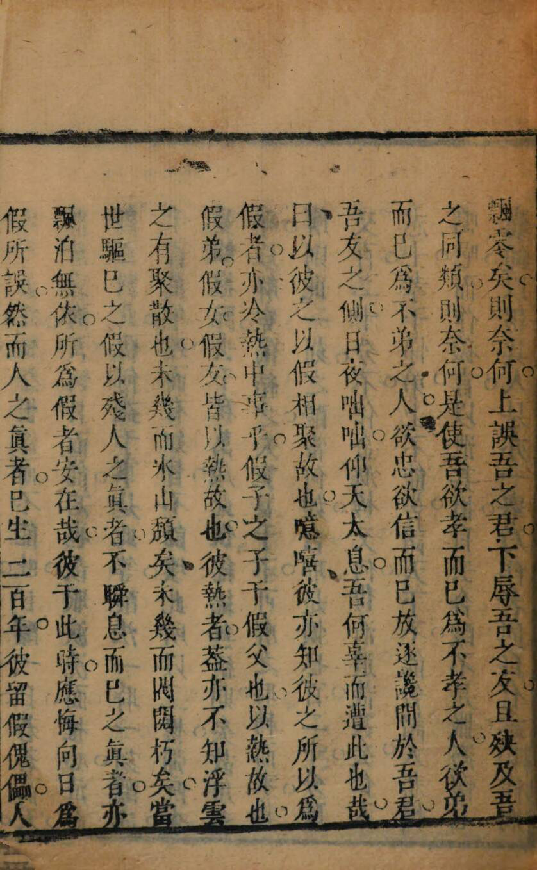 飄零矣則奈何上誤吾之君下辱吾之友且殃及吾
之同類則奈何是使吾欲孝而巳爲不孝之人欲弟
而巳爲不弟之人欲忠欲信而巳放逐讒間於吾君
吾友之側日夜咄咄仰天太息吾何辜而遭此也哉
曰以彼之以假相聚故也噫嘻彼亦知彼之所以爲
假者亦冷熱中事乎假子之子于假父也以熱故也
假弟假女假友皆以熱故也彼熱者葢亦不知浮雲
之有聚散也未幾而氷山頽矣未幾而閥閱朽矣當
世驅巳之假以殘人之眞者不瞬息而巳之眞者亦
飄泊無依所爲假者安在哉彼于此時應悔向日爲
假所誤然而人之眞者巳生二百年彼留假傀儡人